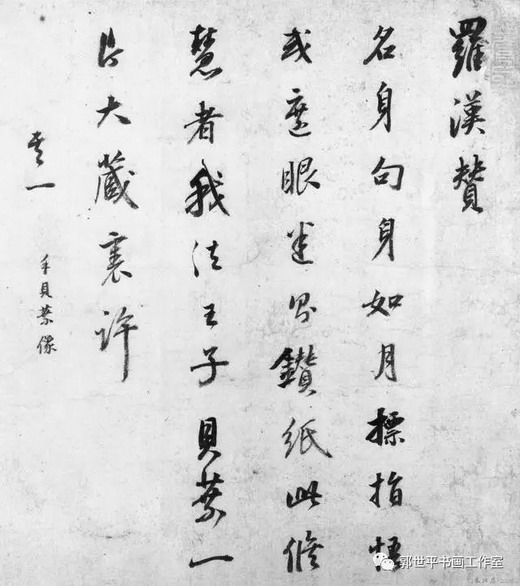 羅漢贊
名身句身如月標指悟
或遮眼迷鑽紙此脩
慧者我法王子貝葉一
片大藏裏許
一
手貝葉像
郭世平书画工作室